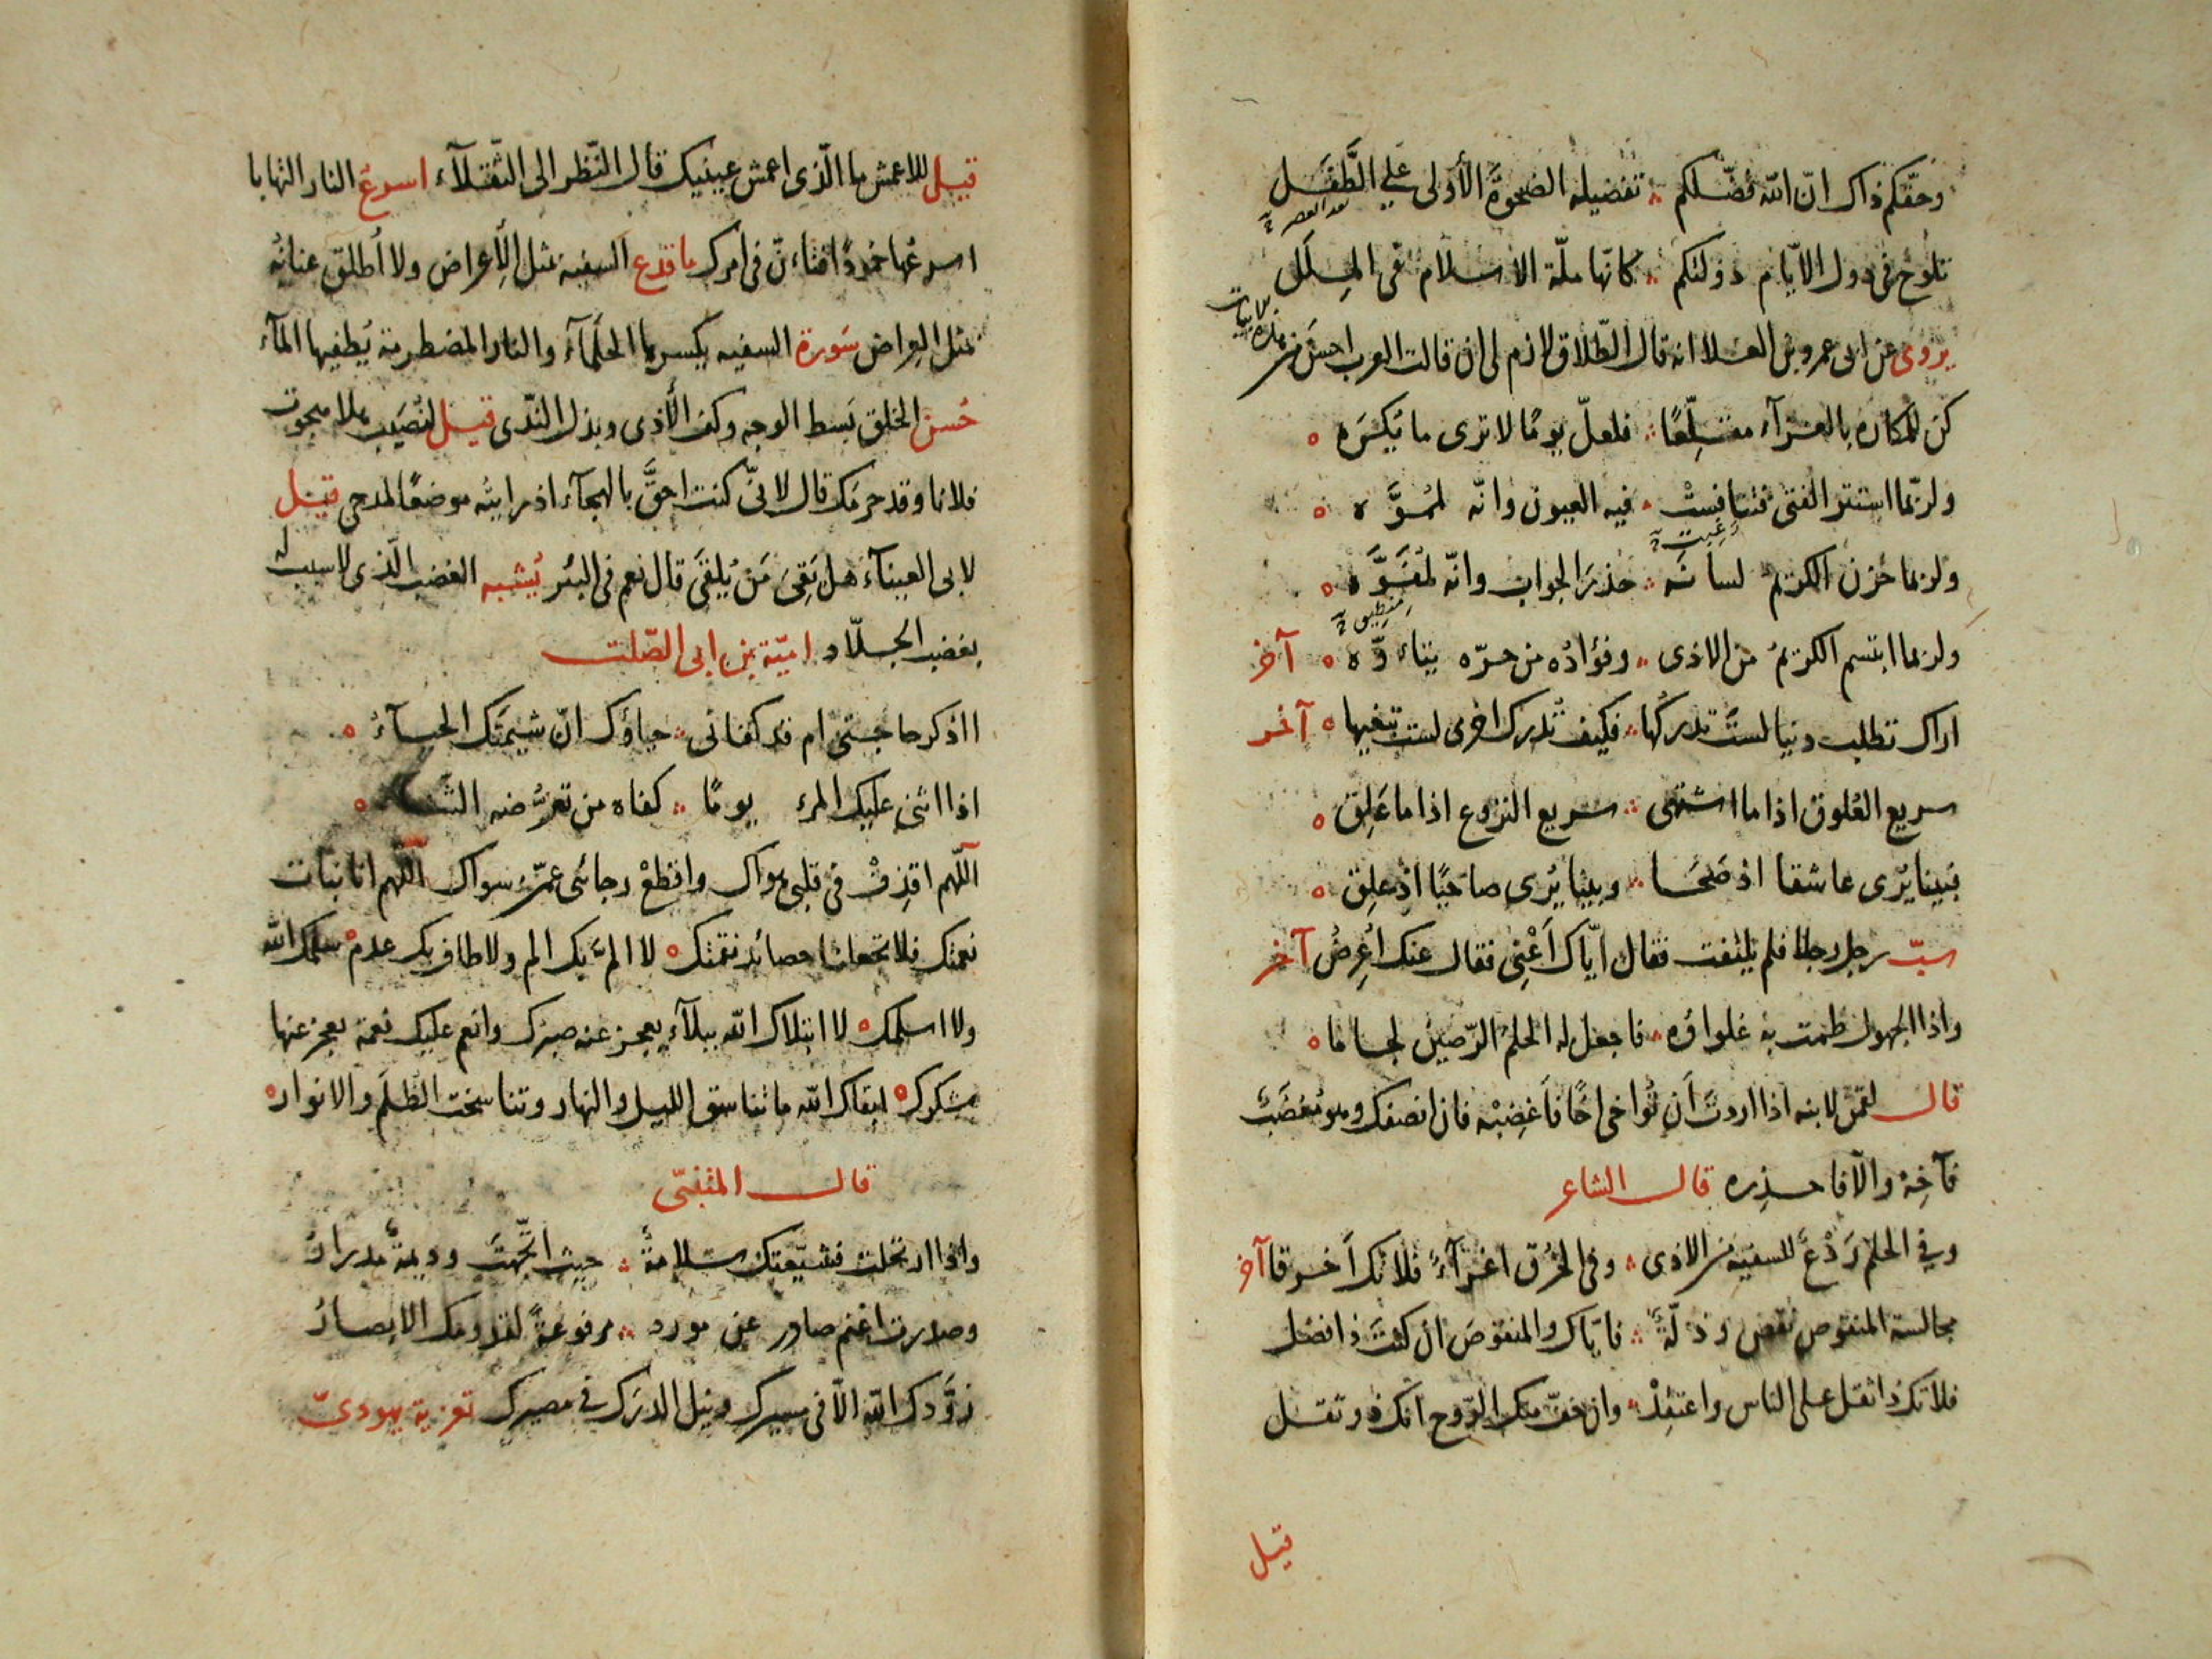 وحقّكم ذاك انّ الله فضّلكم ؞ تفضيله الضحوةَ الأولى علي الطَّفَل
بعد العصر
تلوح في دول الايّام دولتكم ؞ كانّها ملّة الاسلام في المِلَل
يروى عن ابى عمرو بن العلا انه قال الطّلاق لازم لى ان قالت العرب احسَن من
هذه الابيات
كن للمكاره بالعزآء مقلِّعًا ؞ فلعلّ يومًا لا ترى ما تكرَه
ولربّما استتر الفتى فتنافستْ ؞ فيه العيون وانّه لمموَّه
رغبت
ولربما خزن الكريم لسانَه ؞ حذرَ الجواب وانّه لمُفَوَّه
منطيق
ولربما ابتسم الكريمُ من الاذى ؞ وفؤادُه من حرّه يتاوّه آخر
اراك تطلب دنيا لستَ تدركُها ؞ فكيف تُدرك اخرى لست تبغيها آخر
سريع العُلوق اذا ما اشتهى ؞ سريع النزوع اذا ما عَلِق
فبينا يُرى عاشقا اذ صَحَا ؞ وبينا يُرى صاحيًا اذ علِق
سبّ رجل رجلا فلم يلتفت فقال ايّاك اَعْنِى فقال عنك اُعرِضُ آخر
واذا الجهول طمت به غلواؤه ؞ فاجعل له الحلمَ الرّصينَ لجاما
قال لقمن لابنه اذا اردتَ اَن تُواخى اخًا فاَغضِبْه فان انصفك وهو مُغضَبٌ
فآخِهْ والّا فاحذره قال الشاعر
وفي الحلم رَدْعٌ للسفيه من الاذى ؞ وفى الخُرق اغرآءٌ فلا تك اَخرقا آخر
مجالسة المنقوص نقص وذلّةٌ ؞ فايّاك والمنقوصَ ان كنتَ ذا فضل
فلا تك ذا ثقل على الناس واعتقِدْ ؞ وان خفّ منك الرّوح انك ذو ثقل
قيل
قيل للاعمش ما الّذى اعمش عينيك قال النّظر الى الثّقلآء اسرعُ النار التهابا
اسرعُها خمودًا فتاءنّ فى امرك ما قدع السفيه بمثل الِاعراض ولا اُطلق عنانُه
بمثل العِراض سَورة السفيه يكسرها الحلمآء والنار المضطرمة يُطفيها المآء
حُسن الخلق بَسط الوجه وكف الأذى وبذل الندى قيل لنُصَيب هلا هجوت
فلانا وقد حرمك قال لانّى كنت احقَّ بالهجآء اذ رايته موضعًا لمدحى قيل
لابى العينآء هل بَقِىَ مَن يُلقَى قال نعم فى البئر يُشبه الغضب الّذى لا سبب له
بغضب الجلّاد اميّة بن ابى الصّلت
ااذكر حاجتى ام قد كفانى ؞ حياؤك انّ شيمتَك الحيآءُ
اذا اثنى عليك المرء يومًا ؞ كفاه من تعرّضه الثناء
اللّهم اقذِفْ فى قلبى هواك واقطعْ رجائى عمّن سواك اللّهم انا نبات
نعمتك فلا تجعلنا حصائد نقمتك لا المّ بك الم ولا طاف بك عدم سلمك الله
ولا اسلمك لا ابتلاك الله ببلآءٍ يعجز عنه صبرك وانعم عليك نعمة يعجز عنها
شكرك ابقاك الله ما تناسق الليل والنهار وتناسخت الظُلَم والانوار
قال المتنبّى
واذا ارتحلت فشيّعتك سلامةٌ ؞ حيث اتّجهتَ وديمةٌ مدرارُ
وصدرت اغنم صادر عن مورد ؞ مرفوعةً لقدومك الابصارُ
زوَّدك الله الامن فى مسيرك ونيل الدرك في مصيرك تعزية يهودىّ